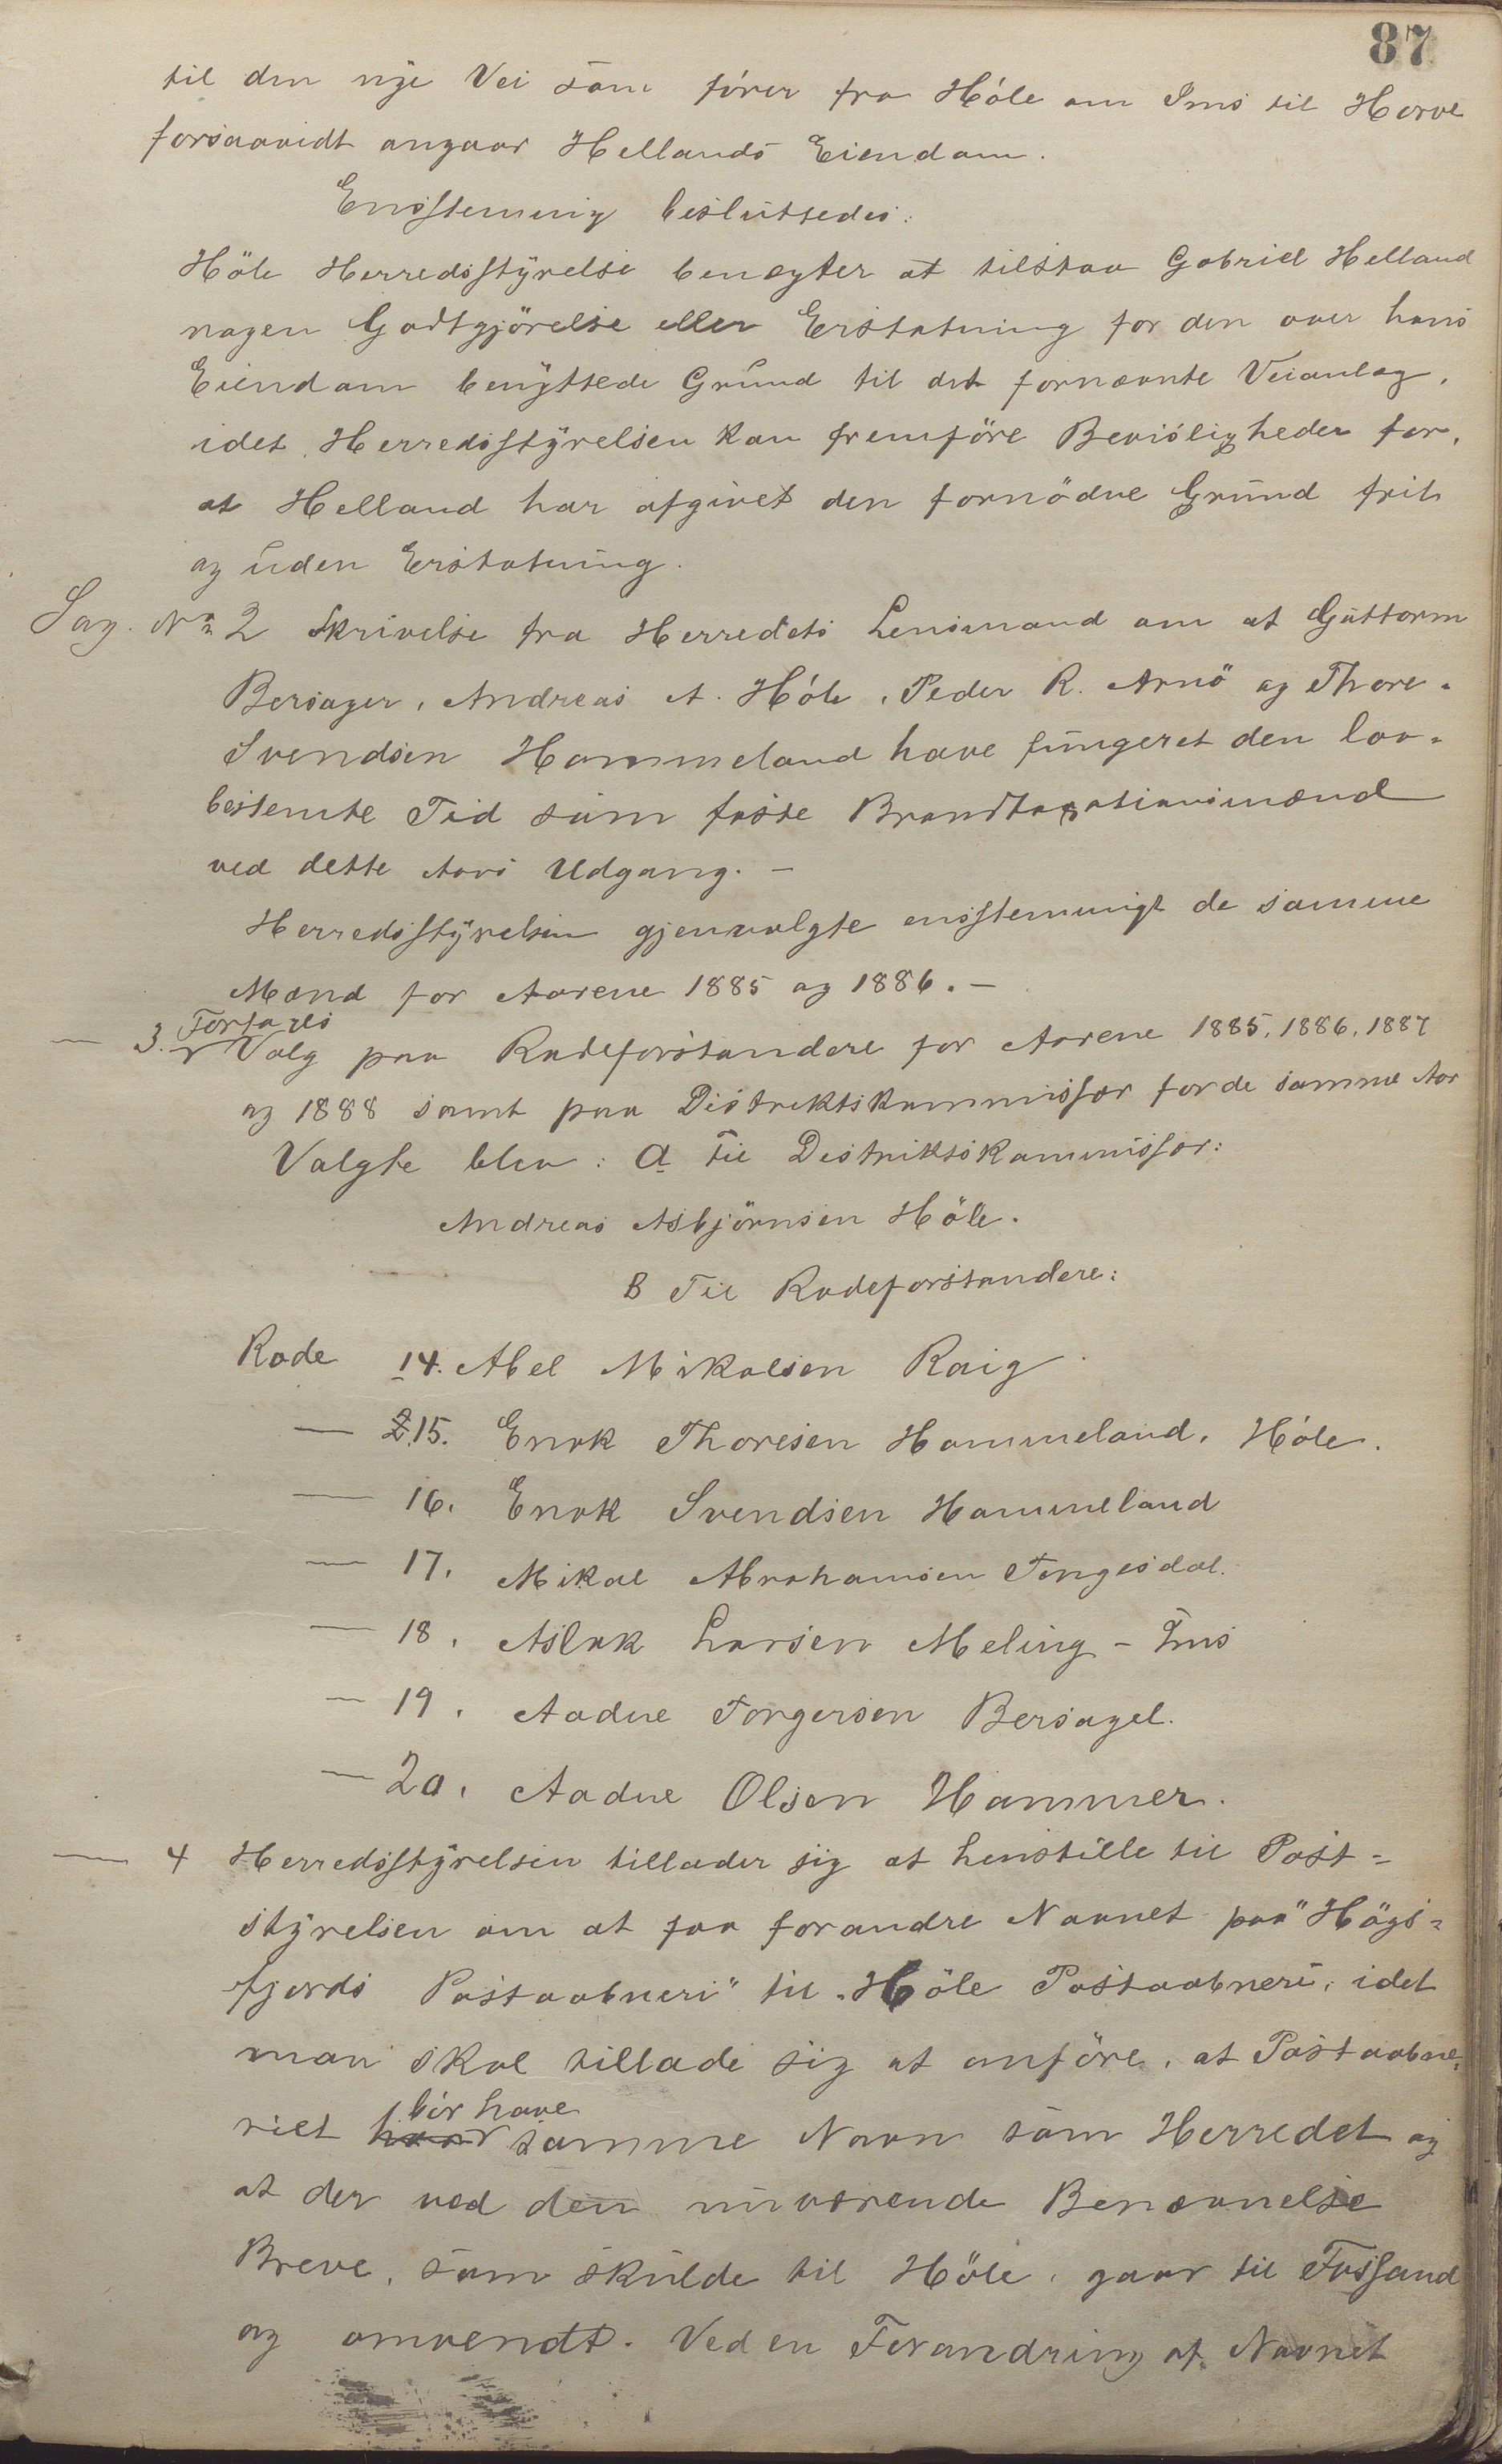 87
til den nye Vei som fører fra Høle om Ims til Horve
forsaavidt angaar Hellands Eiendom.
Enstemmig besluttedes:
Höle Herredsstyrelse benegter at tilstaa Gabriel Helland
nogen Godtgjörelse eller Erstatning for den over hans
Eiendom benyttede Grund til det fornævnte Veianlæg,
idet Herredsstyrelsen kan fremföre Bevisligheder for,
at Helland har afgivet den fornödne Grund frit
og uden Erstatning.
Sag. No 2 Skrivelse fra Herredets Lensmand om at Guttorm
Bersager, Andreas A. Høle, Peder R. Arnö og Thore
Svendsen Hommeland have fungeret den lov-
bestemte Tid som faste Brandtaxationsmænd
ved dette Aars Udgang. –
Herredsstyrelsen gjenvalgte enstemmigt de samme
Mænd for Aarene 1885 og 1886. –
— 3. Foretages Valg paa Rodeforstandere for Aarene 1885, 1886, 1887
og 1888 samt paa Distriktskommissær for de samme Aar
Valgte blev: a til Distriktskommissær:
Andreas Asbjörnsen Höle.
B Til Rodeforstandere:
Rode 14. Abel Mikalsen Raig
— 2.15. Enok Thoresen Hommeland, Høle.
— 16. Enok Svendsen Hommeland
— 17. Mikal Abrahamsen Tengesdal.
— 18. Aslak Larsen Meling – Ims
— 19. Aadne Torgersen Bersagel.
— 20. Aadne Olsen Hammer.
— 4 Herredsstyrelsen tillader sig at henstille til Post-
styrelsen om at faa forandre Navnet paa "Högs-
fjords Postaabneri" til "Höle Postaabneri, idet
man skal tillade sig at anföre, at Postaabne-
riet har bör have samme Navn som Herredet og
at der ved den nuværende Benævnelse
Breve, som skulde til Höle, gaar til Fossand
og omvendt. Ved en Forandring af Navnet